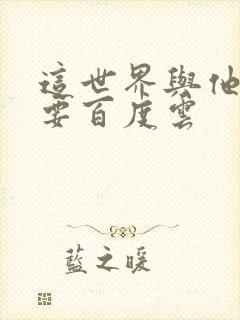 這世界與他
要百度雲
藍之暖